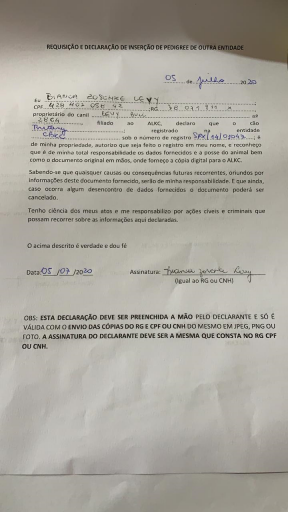 REQUISIÇÃO E DECLARAÇÃO DE INSERÇÃO DE PEDIGREE DE OUTRA ENTIDADE
05 de Julho 2020
Eu BIANCA LEVY
CPF RG
proprietário do canil LEVY BULL
filiado ao ALKC, declaro que o cão
registrado na entidade
sob o número de registro é
de minha propriedade, autorizo que seja feito o registro em meu nome, e reconheço
que é de minha total responsabilidade os dados fornecidos e a posse do animal bem
como o documento original em mãos, onde forneço a cópia digital para o ALKC.
Sabendo-se que quaisquer causas ou consequências futuras recorrentes, oriundos por
informações deste documento fornecido, serão de minha responsabilidade. E que ainda,
caso ocorra algum desencontro de dados fornecidos o documento poderá ser
cancelado.
Tenho ciência dos meus atos e me responsabilizo por ações cíveis e criminais que
possam recorrer sobre as informações aqui declaradas.
O acima descrito é verdade e dou fé
Data: 05 /07 /2020 Assinatura: Levy
(Igual ao RG ou CNH)
OBS: ESTA DECLARAÇÃO DEVE SER PREENCHIDA A MÃO PELO DECLARANTE E SÓ É
VÁLIDA COM O ENVIO DAS CÓPIAS DO RG E CPF OU CNH DO MESMO EM JPEG, PNG OU
FOTO. A ASSINATURA DO DECLARANTE DEVE SER A MESMA QUE CONSTA NO RG CPF
OU CNH.